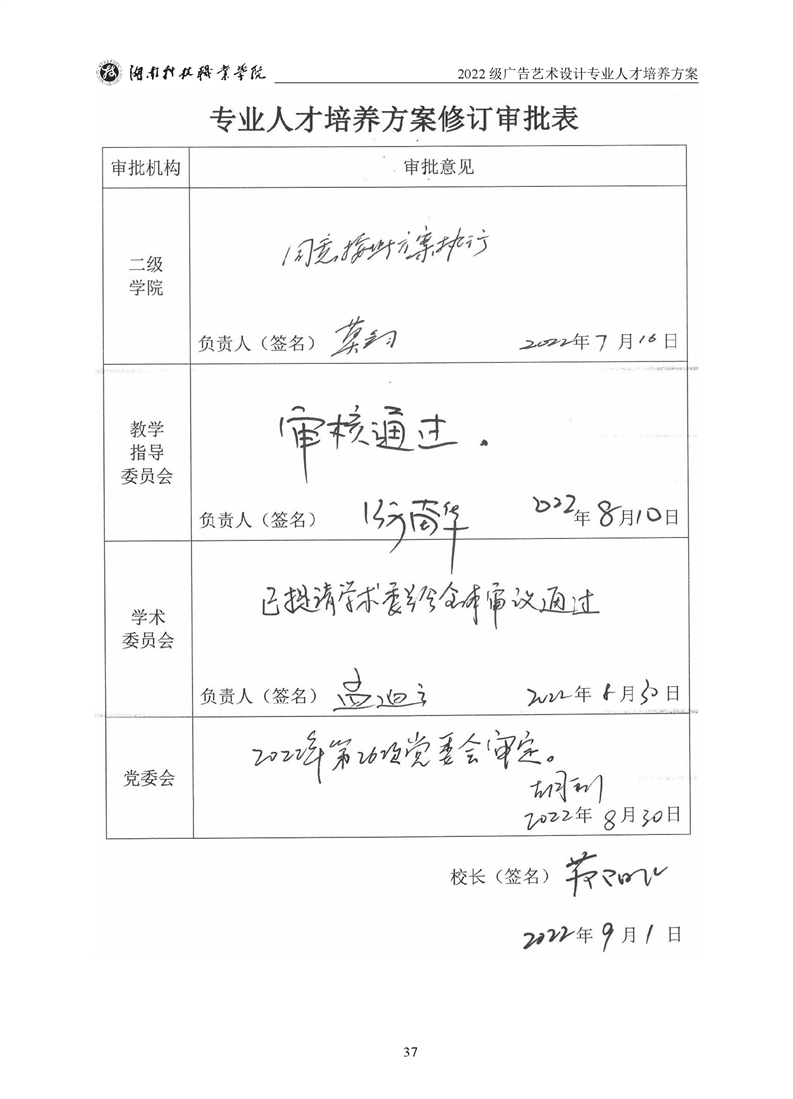 湖南科技职业学院
2022 级广告艺术设计专业人才培养方案
专业人才培养方案修订审批表
审批机构
审批意见
二级
学院
同意按此方案执行
负责人（签名）
2022年7月16日
教学
指导
委员会
审核通过。
负责人（签名）
2022年8月10日
学术
委员会
已提请学术委员会全体审议通过
负责人（签名）
2022年8月30日
党委会
2022年第26次党委会审定。
2022年8月30日
校长（签名）
2022年9月1日
37